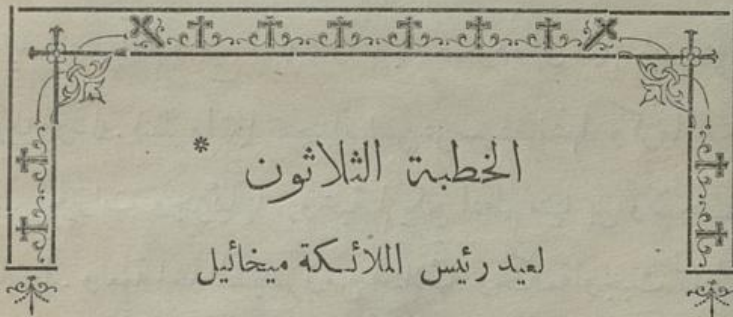 الخطبة الثلاثون *
لعيد رئيس الملائكة ميخائيل